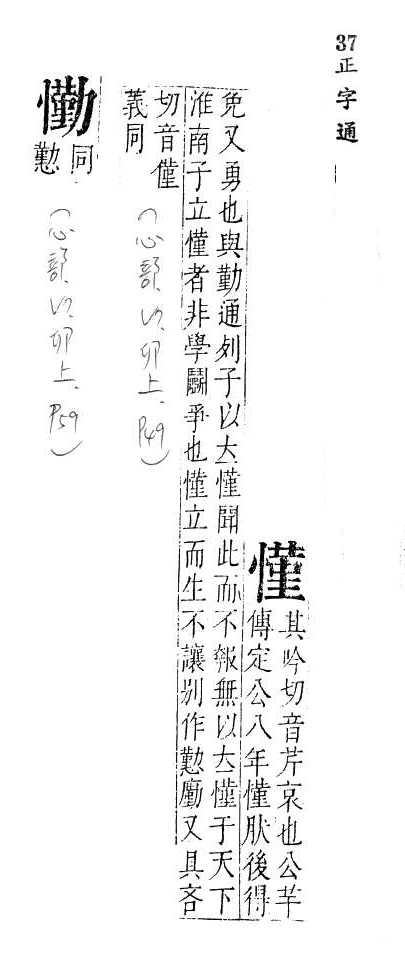 37正字通
慬
其吟切音芹哀也公羊
傳定公八年慬肰後得
免又勇也與勤通列子以立慬聞此而不報無以立慬于天下
淮南子立慬者非學鬭爭也慬立而生不讓别作懃又具吝
切音僅
義同
(心部 卯上、P49)
懄
同
懃
(心部 卯上、P59)